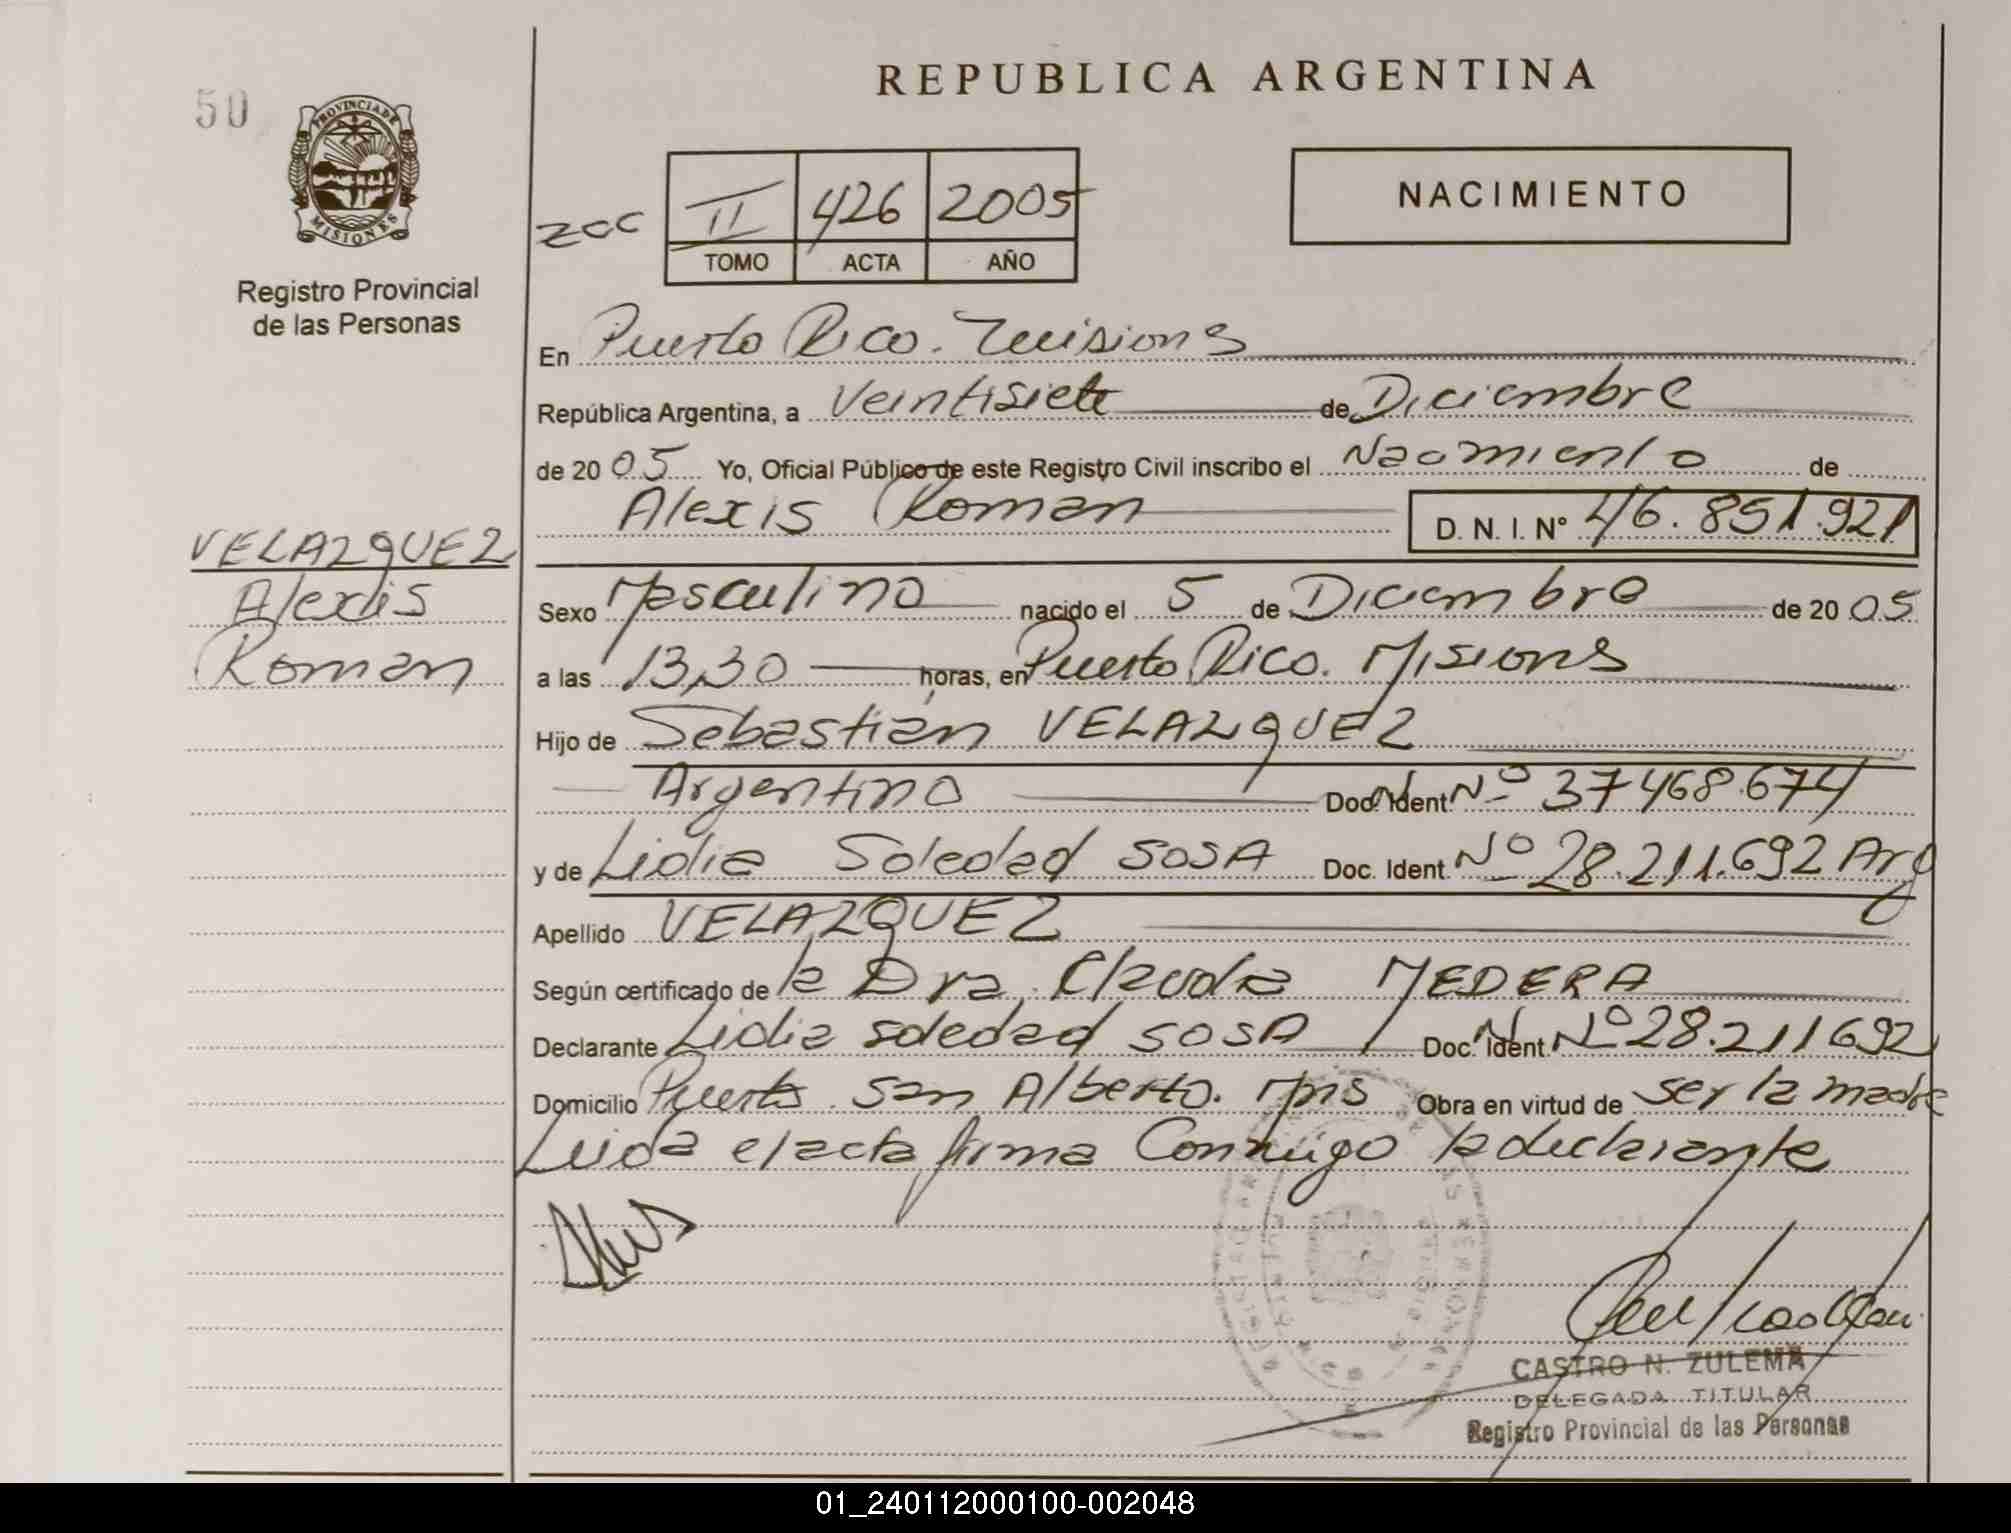 50
PROVINCIA DE
MISIONES
Registro Provincial
de las Personas
REPUBLICA ARGENTINA
NACIMIENTO
zcc II 426 2005
TOMO ACTA AÑO
En Puerto Rico. Misiones
República Argentina, a Veintisiete de Diciembre
de 20 05 Yo, Oficial Público de este Registro Civil inscribo el Nacimiento de
Alexis Roman D. N. I. Nº 46.851.921
VELAZQUEZ
Alexis
Roman
Sexo Masculino nacido el 5 de Diciembre de 20 05
a las 13,30 horas, en Puerto Rico. Misiones
Hijo de Sebastián VELAZQUEZ
Argentino Doc. Ident Nº 37468.674
y de Lidia Soledad SOSA Doc. Ident. Nº 28.211.692 Arg
Apellido VELAZQUEZ
Según certificado de la Dra. Claudia MEDERA
Declarante Lidia Soledad SOSA Doc. Ident. Nº 28.211692
Domicilio Puerto San Alberto. Mns Obra en virtud de ser la madre
Leida el acta firma Conmigo la declarante
CASTRO N. ZULEMA
DELEGADA TITULAR
Registro Provincial de las Personas
01_240112000100-002048